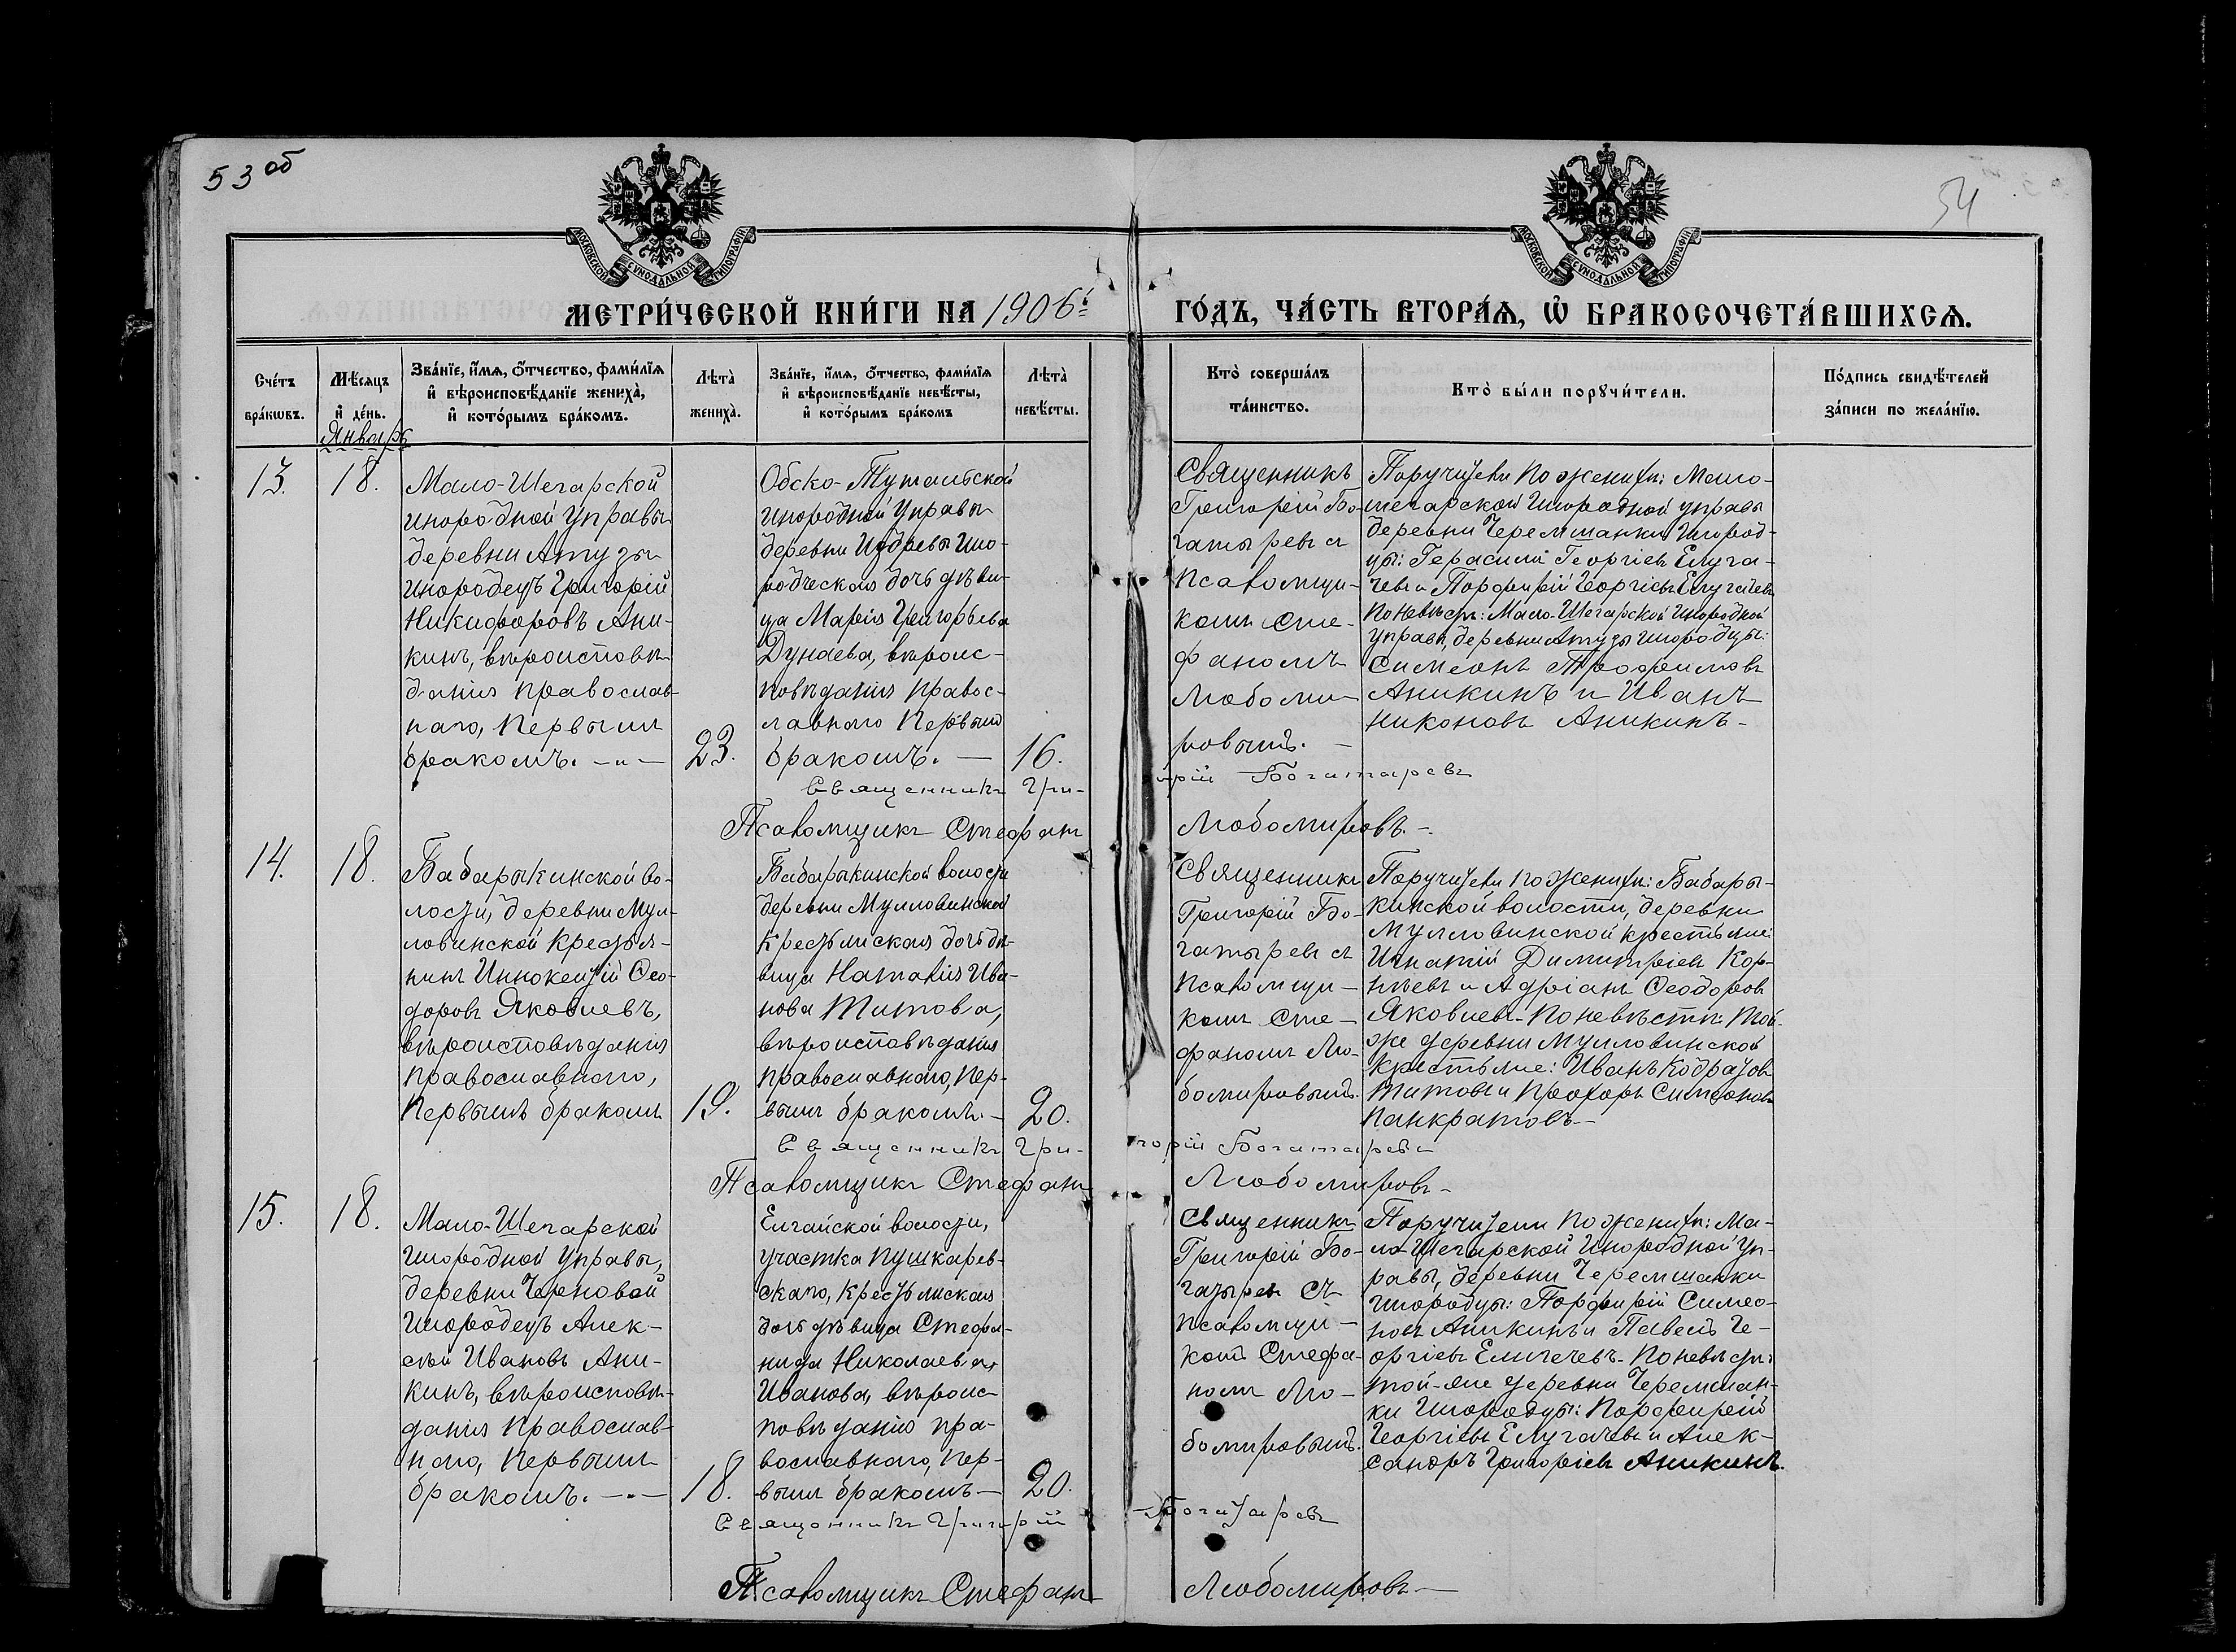 53 об
54
МОСКОВСКОЙ СѴНОДАЛЬНОЙ ТИПОГРАФІИ
МОСКОВСКОЙ СѴНОДАЛЬНОЙ ТИПОГРАФІИ
МЕТРИ́ЧЕСКОЙ КНИ́ГИ НА 1906й
ГО́ДЪ, ЧА́СТЬ ВТОРА́Ѧ, Ѽ БРАКОСОЧЕТА́ВШИХСѦ.
Сче́тъ
бра́кѡвъ.
Мѣ́сѧцъ
и҆ де́нь.
Январь
Зва́нїе, и҆́мѧ, ѻ҆́тчество, фами́лїѧ
и҆ вѣроисповѣ́данїе жениха̀,
и҆ кото́рымъ бра́комъ.
Лѣта̀
жениха̀.
Зва́нїе, и҆́мѧ, ѻ҆́тчество, фами́лїѧ
и҆ вѣроисповѣ́данїе невѣ́сты,
и҆ кото́рымъ бра́комъ
Лѣта̀
невѣ́сты.
Кто̀ соверша́лъ
та́инство.
Кто̀ бы́ли порꙋчи́тели.
По́дпись свидѣ́телей
за́писи по жела́нїю.
13.
18.
Мало-Шегарской
инородной управы
деревни Атузы
инородецъ Григорій
Никифоровъ Ани-
кинъ, вѣроисповѣ-
данія православ-
наго, первымъ
бракомъ.
23.
Обско-Тутальской
инородной управы
деревни Ино-
родческая дочь дѣви-
ца Марія Григорьева
Дунаева, вѣроис-
повѣданія правос-
лавнаго первымъ
бракомъ.
16.
Священникъ
Григорій Бо-
гатыревъ съ
псаломщи-
комъ Сте-
фаномъ
Любоми-
ровымъ.
Поручители по женихѣ: Мало-
шегарской Инородной управы
деревни Черемшанки инород-
цы: Герасимъ Георгіевъ Елуга-
чевъ и Порфирій Георгіевъ Елугачевъ
По невѣстѣ: Мало-Шегарской Инородной
управы, деревни Атузы инородцы:
Симеонъ Трофимовъ
Аникинъ и Иванъ
Никоновъ Аникинъ
Священникъ Григорій Богатыревъ
Псаломщикъ Стефанъ Любомировъ.
14.
18.
Бабарыкинской во-
лости, деревни Мул-
ловинской крестья-
нинъ Иннокентій Ѳео-
доровъ Яковлевъ,
вѣроисповѣданія
православнаго,
первымъ бракомъ
19.
Бабарыкинской волости
деревни Мулловинской
крестьянская дочь дѣ-
вица Наталія Ива-
нова Титова,
вѣроисповѣданія
православнаго, пер-
вымъ бракомъ.
20.
Священникъ
Григорій Бо-
гатыревъ съ
псаломщи-
комъ Сте-
фаномъ Лю-
бомировымъ.
Поручители по женихѣ: Бабары-
кинской волости, деревни
Мулловинской крестьяне:
Игнатій Димитріевъ Кор-
нѣевъ и Адріанъ Ѳеодоровъ
Яковлевъ. По невѣстѣ: той-
же деревни Мулловинской
крестьяне: Иванъ Кодратовъ
Титовъ и Прохоръ Симеоновъ
Панкратовъ
Священникъ Григорій Богатыревъ
Псаломщикъ Стефанъ Любомировъ
15.
18.
Мало-Шегарской
Инородной Управы,
деревни Черновой
Инородецъ Алек-
сѣй Ивановъ Ани-
кинъ, вѣроисповѣ-
данія Православ-
наго, первымъ
бракомъ.
18.
Елгайской волости,
участка Пушкарев-
скаго, крестьянская
дочь дѣвица Стефа-
нида Николаевна
Иванова, вѣроис-
повѣданія пра-
вославнаго, пер-
вымъ бракомъ
20.
Священникъ
Григорій Бо-
гатыревъ съ
псаломщи-
комъ Стефа-
номъ Лю-
бомировымъ.
Поручители по женихѣ: Ма-
ло-Шегарской Инородной Уп-
равы, деревни Черемшанки
инородцы: Порфирій Симео-
новъ Аникинъ и Павелъ Ге-
оргіевъ Елигечевъ. По невѣстѣ:
той-же деревни Черемшан-
ки инородцы: Порфирій
Георгіевъ Елугачевъ и Алек-
сандръ Григоріевъ Аникинъ.
Священникъ Григорій Богатыревъ
Псаломщикъ Стефанъ Любомировъ